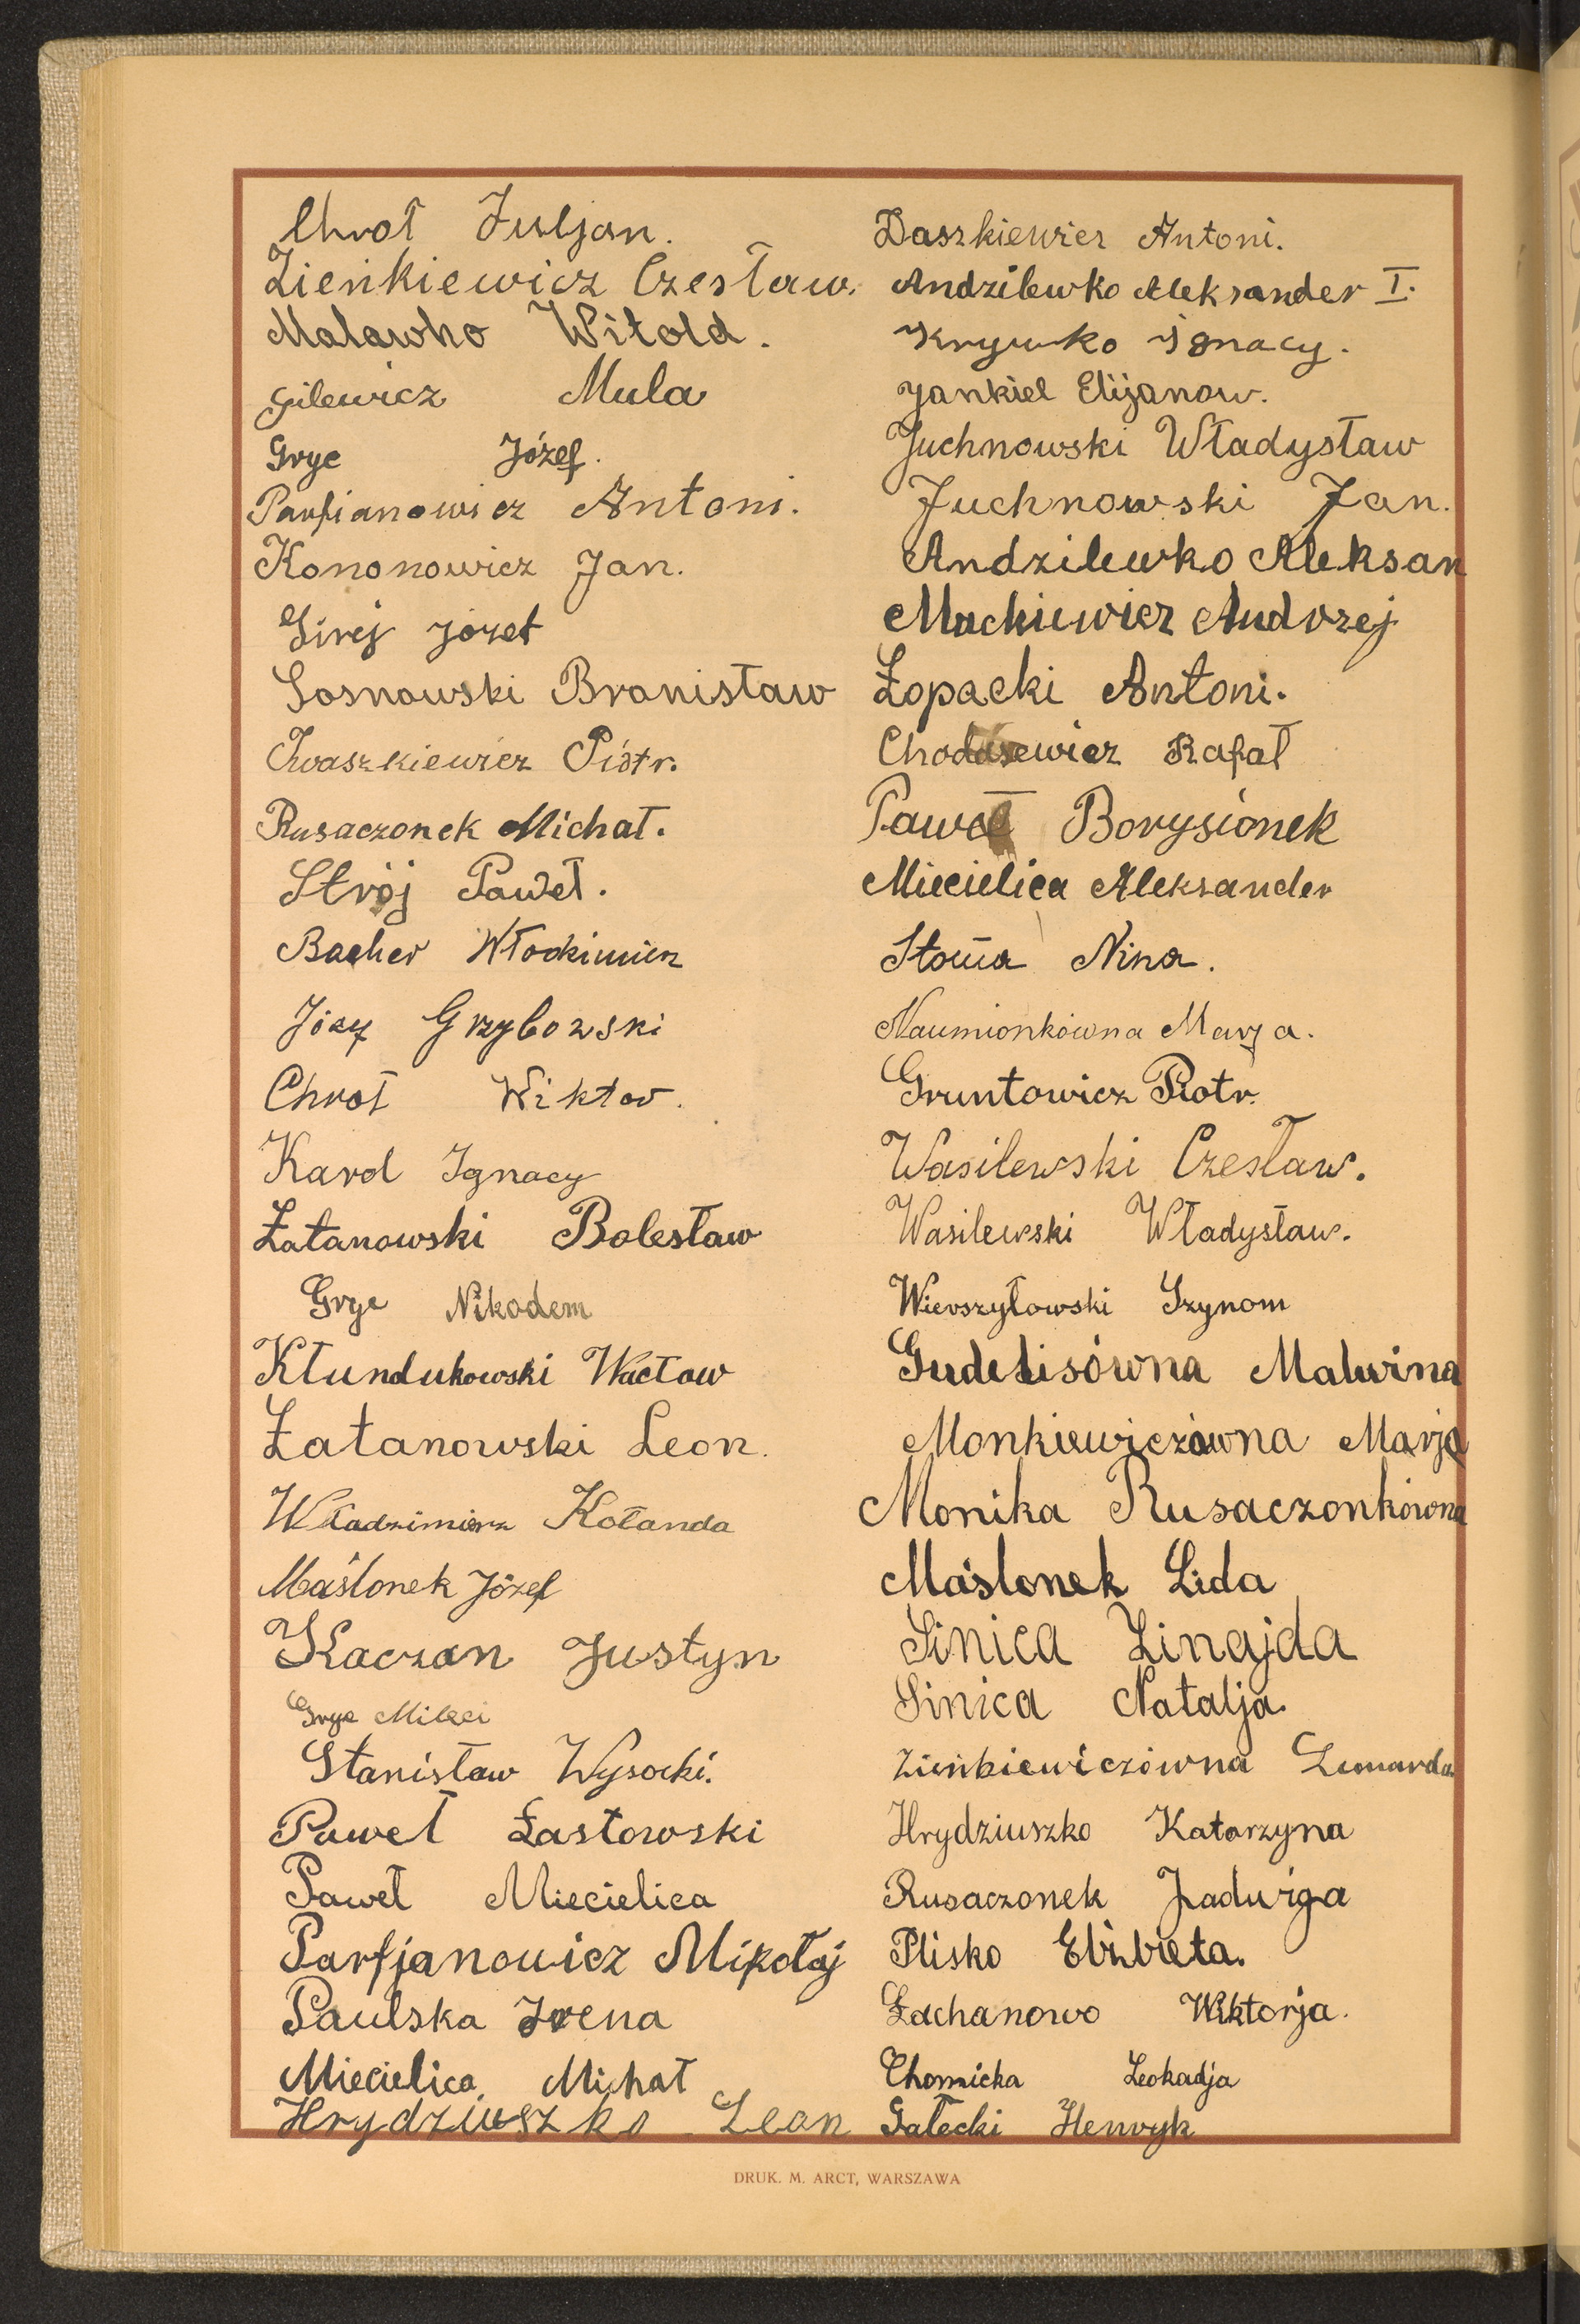 Chroł Juljan.
Zieńkiewicz Czesław.
Malawko Witold.
Gilewicz Mula
Gryc Józef.
Parfianowicz Antoni.
Kononowicz Jan.
Girej Józef
Sosnowski Bronisław
Iwaszkiewicz Piótr.
Rusaczonek Michał.
Strój Paweł.
Bacher
Józef Grzybowski
Chroł Wiktor.
Karol Ignacy
Łatanowski Bolesław
Gryc Nikodem
Kłundukowski Wacław
Łatanowski Leon.
Władzimierz Kołanda
Maślonek Józef
Kaczan Justyn
Gryc
Stanisław Wysocki.
Paweł Łastowski
Paweł Miecielica
Parfjanowicz Mikołaj
Paulska Irena
Miecielica Michał
Hrydziuszko Leon
Daszkiewicz Antoni.
Andzilewko Aleksander I.
Krywko Ignacy.
Jankiel Elijanow.
Juchnowski Władysław
Juchnowski Jan.
Andzilewko Aleksan
Mackiewicz Andrzej
Łopacki Antoni.
Chodasewicz Rafał
Paweł Borysionek
Miecielica Aleksander
Stoma Nina.
Naumionkówna Marja.
Gruntowicz Piotr.
Wasilewski Czesław.
Wasilewski Władysław.
Wierszyłowski Szynom
Gudelisówna Malwina
Monkiewiczówna Marja
Monika Rusaczonkówna
Maślonek Lida
Sinica Zinajda
Sinica Natalja
Zieńkiewiczówna Lenarda
Hrydziuszko Katarzyna
Rusaczonek Jadwiga
Plisko Elżbieta.
Łachanowo Wiktorja.
Chomicka Leokadja
Gałecki Henryk
DRUK. M. ARCT, WARSZAWA